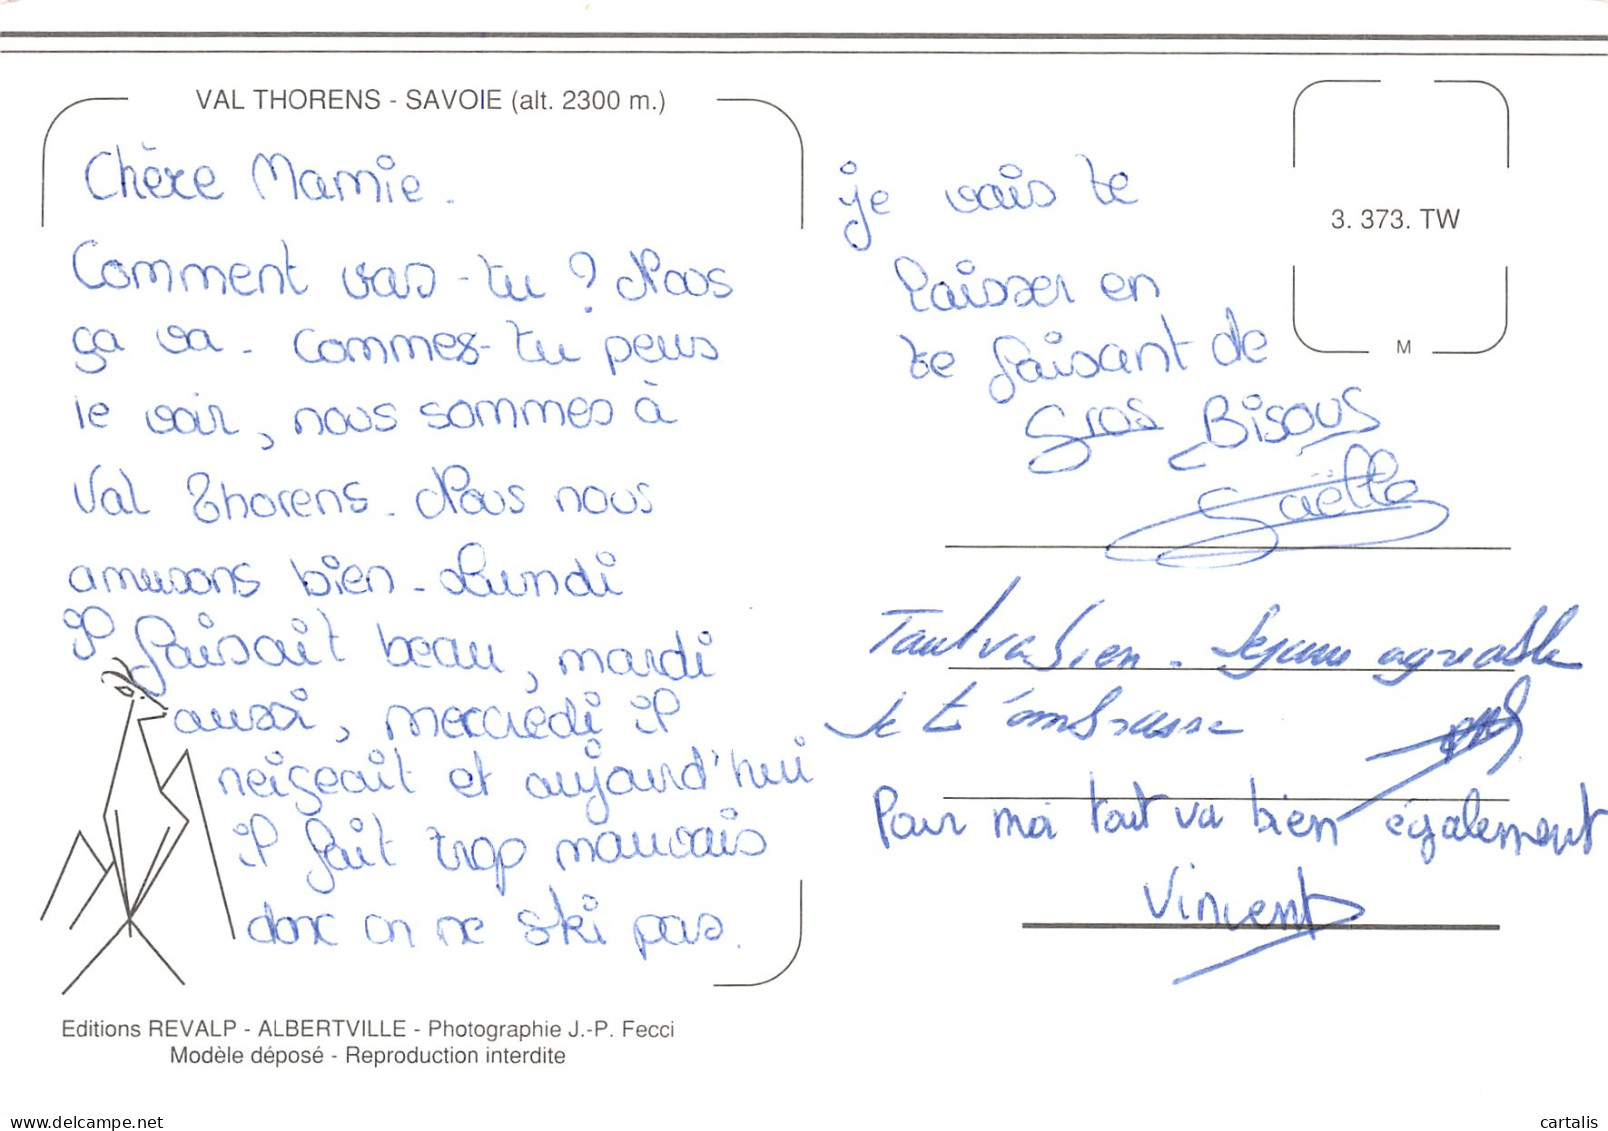 VAL THORENS - SAVOIE (alt. 2300 m.)
Chère Mamie.
Comment vas-tu ? Nous
ça va. Commes-tu peus
le voir, nous sommes à
Val Thorens. Nous nous
amusons bien. Lundi
il faisait beau, mardi
aussi, mercredi il
neigeait et aujourd'hui
il fait trop mauvais
donc on ne ski pas.
Editions REVALP - ALBERTVILLE - Photographie J.-P. Fecci
Modèle déposé - Reproduction interdite
3. 373. TW
M
je vais te
laisser en
te faisant de
Gros Bisous
Gaëlle
Tout va bien. Sejour agreable
Je t'embrasse
Pour moi tout va bien également
Vincent
delcampe.net
cartalis